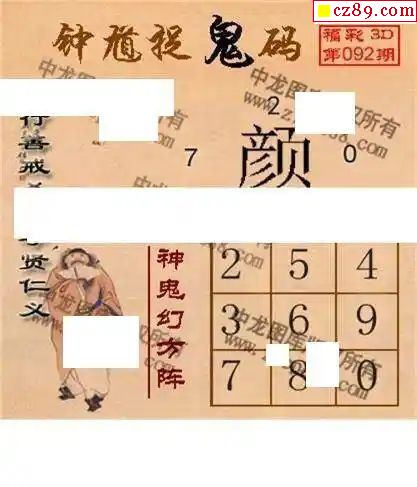 cz89.com
钟馗捉鬼码
福彩3D
第092期
2
7 颜 0
行善戒
贤仁义
神鬼幻方阵
2 5 4
3 6 9
7 8 0